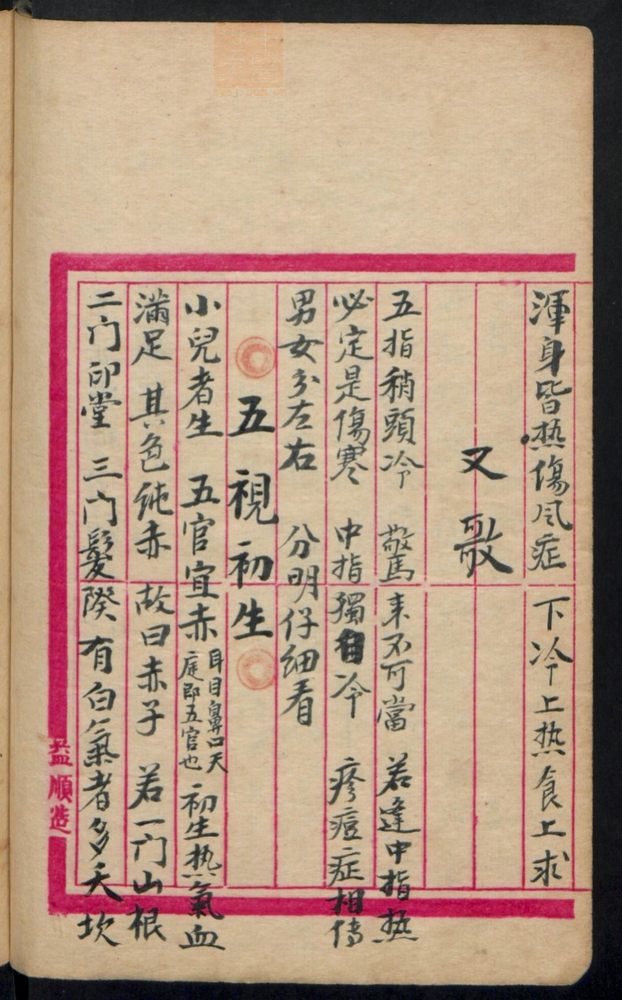 渾身皆热傷风症　下冷上热食上求
又歌
五指稍頭冷　驚来不可當　若逢中指热
必定是傷寒　中指獨自冷　疹痘症相傳
男女分左右　分明仔細看
五視初生
小兒者生　五官宜赤　耳目鼻口天
庭即五官也　初生热氣血
滿足　其色纯赤　故曰赤子　若一门山根
二门印堂　三门髮際　有白氣者多夭坎
益順造